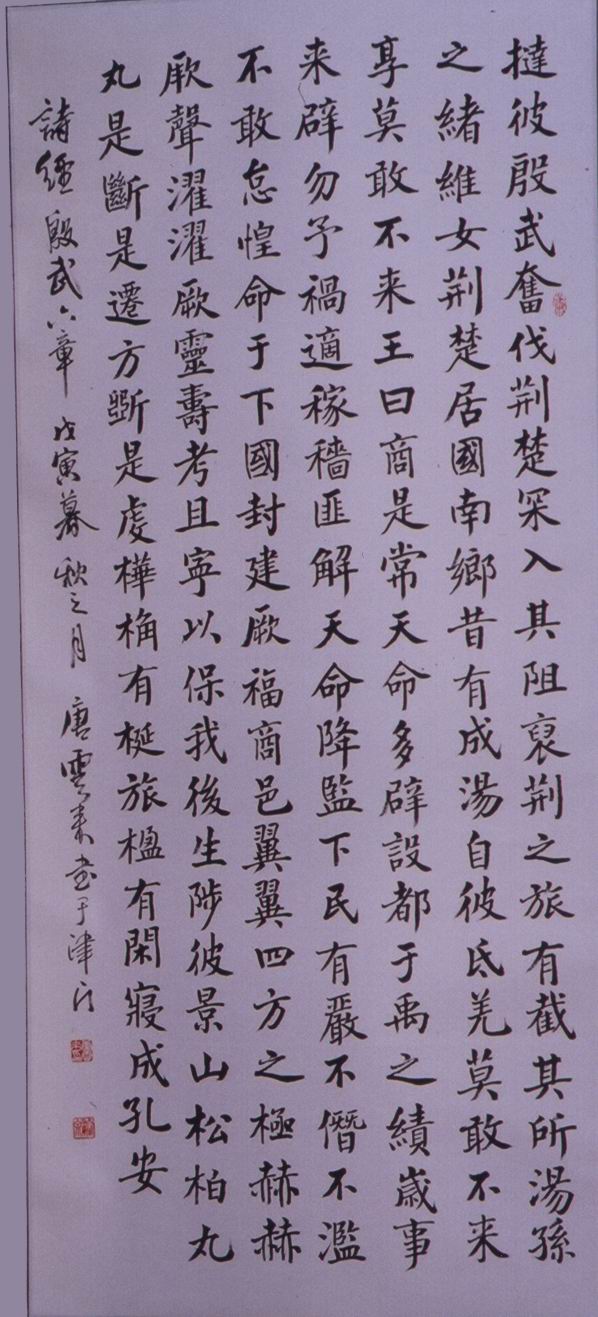 撻彼殷武奮伐荆楚罙入其阻裒荆之旅有截其所湯孫
之緒維女荆楚居國南鄉昔有成湯自彼氐羌莫敢不来
享莫敢不来王曰商是常天命多辟設都于禹之績歲事
来辟勿予禍適稼穡匪解天命降監下民有嚴不僭不濫
不敢怠惶命于下國封建厥福商邑翼翼四方之極赫赫
厥聲濯濯厥靈壽考且寧以保我後生陟彼景山松柏丸
丸是斷是遷方斲是虔樺桷有梴旅楹有閑寢成孔安
詩經殷武六章 戊寅暮秋之月 唐雲来书于津门